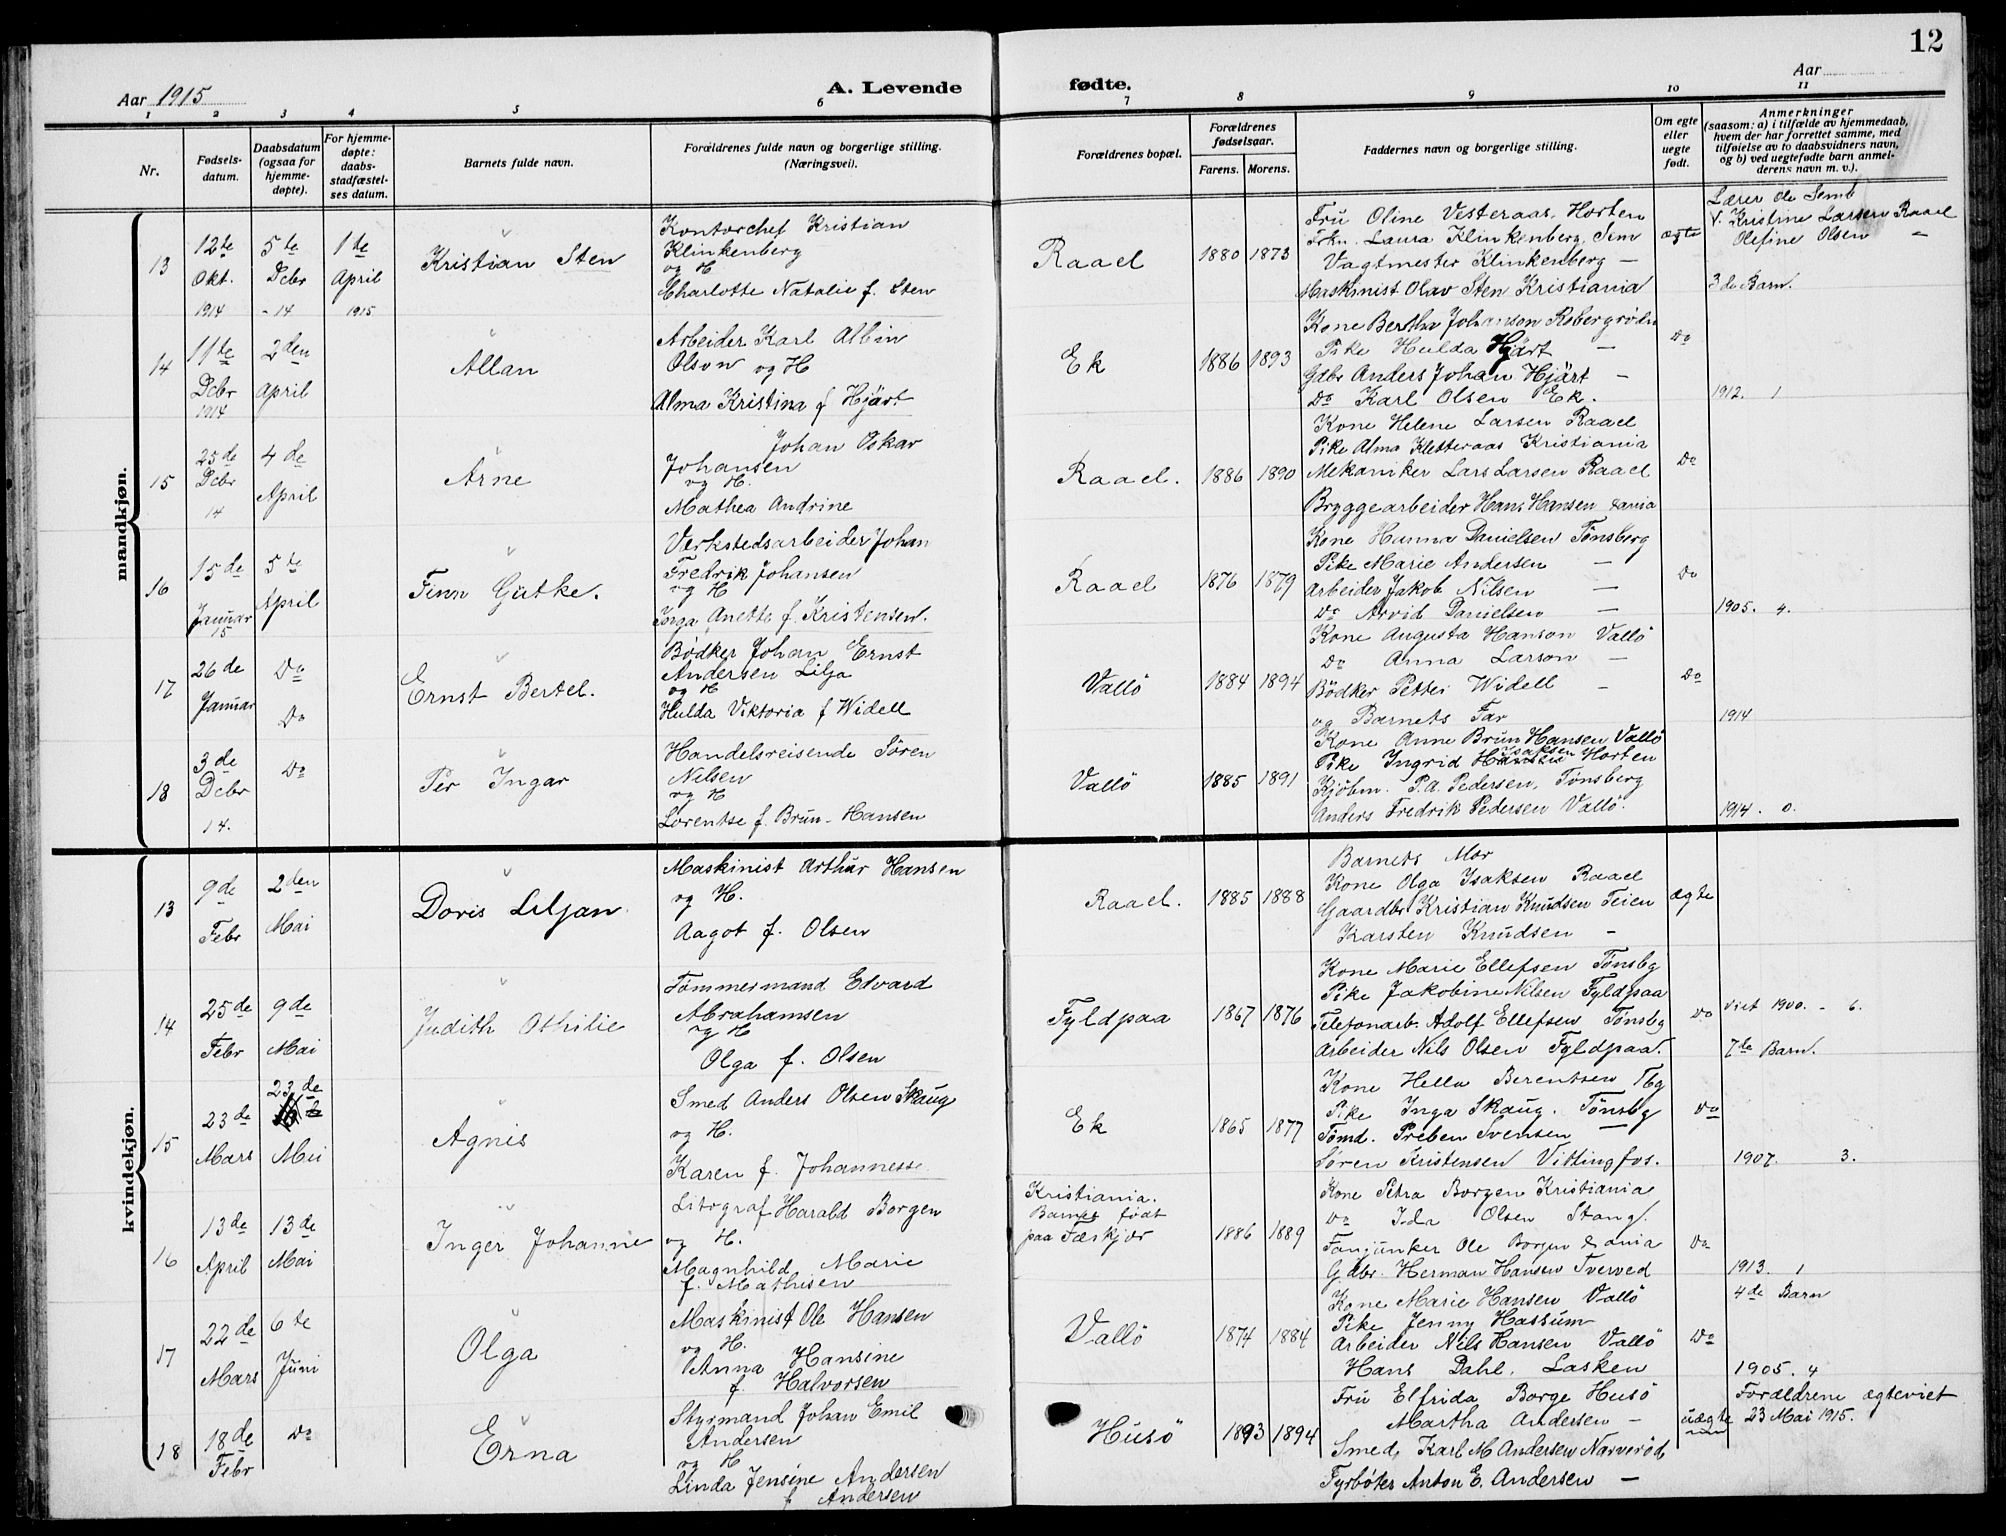 12
Aar 1915
A. Levende fødte.
Aar
1 2 3 4 5 6 7 8 9 10 11
Nr.
Fødsels-
datum.
Daabsdatum
(ogsaa for
hjemme-
døpte).
For hjemme-
døpte:
daabs-
stadfæstel-
ses datum.
Barnets fulde navn.
Forældrenes fulde navn og borgerlige stilling.
(Næringsvei).
Forældrenes bopæl.
Forældrenes
fødselsaar.
Farens. Morens.
Faddernes navn og borgerlige stilling.
Om egte
eller
uegte
født.
Anmerkninger
(saasom: a) i tilfælde av hjemmedaab,
hvem der har forrettet samme, med
tilføielse av to daabsvidners navn,
og b) ved uegtefødte barn anmel-
derens navn m. v.).
mandkjøn.
13
12te
Okt.
1914
5te
Dcbr
- 14
1te
April
1915
Kristian Sten
Kontorchef Kristian
Klinkenberg
og H
Charlotte Natalie f. Sten
Raael
1880 1873
Fru Oline Vesteraas, Horten
Frkn. Laura Klinkenberg, Sem
Vagtmester Klinkenberg —
Maskinist Olav Sten Kristiania
ægte
Lærer Ole Semb
v. Kristine Larsen Raael
Olefine Olsen —
3de Barn.
14
11te
Dcbr
1914
2den
April
Allan
Arbeider Karl Albin
Olson og H
Alma Kristina f Hjärt
Ek
1886 1893
Kone Bertha Johanson Robergrødn
Pike Hulda Hjärt —
Gdbr Anders Johan Hjärt —
Do Karl Olsen Ek.
Do
1912. 1
15
25de
Dcbr
14
4de
April
Arne
Johan Oskar
Johansen
og H.
Mathea Andrine
Raael.
1886 1890
Kone Helene Larsen Raael
Pike Alma Kletteraas Kristiania
Mekaniker Lars Larsen Raael
Bryggearbeider Hans Hansen Xania
Do
16
15de
Januar
15
5te
April
Finn Gutke.
Verkstedsarbeider Johan
Fredrik Johansen
og H
Inga Anette f. Kristensen.
Raael
1876 1879
Kone Hanna Danielsen Tønsberg
Pike Marie Andersen —
Arbeider Jakob Nilsen —
Do Arvid Danielsen —
Do
1905. 4.
17
26de
Januar
Do
Do
Ernst Bertel.
Bødker Johan Ernst
Andersen Lilja
og H
Hulda Viktoria f Widell
Vallö
1884 1894
Kone Augusta Hanson Vallö
Do Anna Larson —
Bödker Petter Widell —
og Barnets Far
Do
1914
18
3de
Dcbr
14.
Do
Per Ingar
Handelsreisende Søren
Nilsen
og H
Lorentse f. Brun-Hansen
Vallö
1885 1891
Kone Anne Brun Hansen Vallö
Pike Ingrid Isaksen Horten
Kjöbm. P.A. Pedersen, Tønsberg
Anders Fredrik Pedersen Vallö.
1914. 0.
kvindekjøn.
13
9de
Febr
2den
Mai
Doris Liljan
Maskinist Arthur Hansen
og H.
Aagot f. Olsen
Raael.
1885 1888
Barnets Mor
Kone Olga Isaksen Raael
Gaardbr Kristian Knudsen Teien
Karsten Knudsen —
ægte
14
25de
Febr
9de
Mai
Judith Othilie
Tømmermand Edvard
Abrahamsen
og H
Olga f. Olsen
Fyldpaa
1867 1876
Kone Marie Ellefsen Tønsbg
Pike Jakobine Nilsen Fyldpaa
Telefonarb. Adolf Ellefsen Tønsbg
Arbeider Nils Olsen Fyldpaa.
Do
viet 1900. - 6.
7de Barn.
15
23de
Mars
23de
Mai
Agnis
Smed Anders Olsen Skaug
og H.
Karen f. Johannesse
Ek
1865 1877
Kone Hella Berentsen Tbg
Pike Inga Skaug. Tønsbg
Tømd. Preben Svensen —
Søren Kristensen Vittingfos.
Do
1907. 3.
16
13de
April
13de
Mai
Inger Johanne
Litograf Harald Borgen
og H.
Magnhild Marie
f. Mathisen
Kristiania.
Barnet født
paa Fæskjær
1886 1889
Kone Petra Borgen Kristiania
Do Ida Olsen Stang.
Fanjunker Ole Borgen Xania
Gdbr. Herman Hansen Tverved
Do
1913. 1
17
22de
Mars
6te
Juni
Olga
Maskinist Ole Hansen
og H.
Anna Hansine
f. Halvorsen
Vallö
1874 1884
Kone Marie Hansen Vallö
Pike Jenny Hassum
Arbeider Nils Hansen Vallö
Hans Dahl. Lasken
Do
4de Barn
1905. 4
18
18de
Febr
Do
Erna
Styrmand Johan Emil
Andersen
og H
Linda Jensine Andersen
f. Andersen
Husö
1893 1894
Fru Elfrida Borge Husö
Martha Andersen —
Smed Karl M. Andersen Narverød
Fyrbøter Anton E. Andersen —
uægte
Forældrene ægteviet
23 Mai 1915.